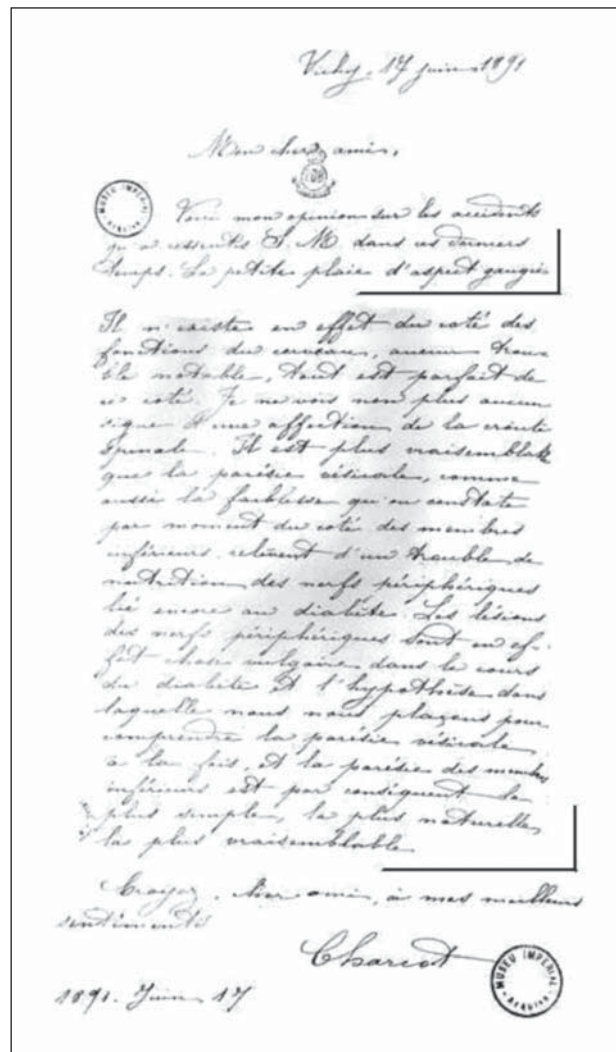 Vichy, 17 juin 1891
Mon cher ami,
MUSEU IMPERIAL
ARQUIVO
Voici mon opinion sur les accidents
qu'a ressentis S. M. dans ces derniers
temps. La petite plaie d'aspect gangré
Il n'existe en effet du coté des
fonctions du cerveau, aucun trou-
ble notable, tout est parfait de
ce coté. Je ne vois non plus aucun
signe d'une affection de la
spinale. Il est plus vraisemblable
que la parésie vésicale, comme
aussi la faiblesse qu'on constate
par moment du coté des membres
inférieurs relèvent d'un trouble de
nutrition des nerfs périphériques
lié encore au diabète. Les lésions
des nerfs périphériques sont en ef-
fet chose vulgaire dans le cours
du diabète et l'hypothèse dans
laquelle nous nous plaçons pour
comprendre la parésie vésicale
à la fois, et la parésie des membres
inférieurs est par conséquent la
plus simple, la plus naturelle,
la plus vraisemblable
Croyez, cher ami, à mes meilleurs
sentiments
Charcot
MUSEU IMPERIAL
ARQUIVO
1891. Juin 17